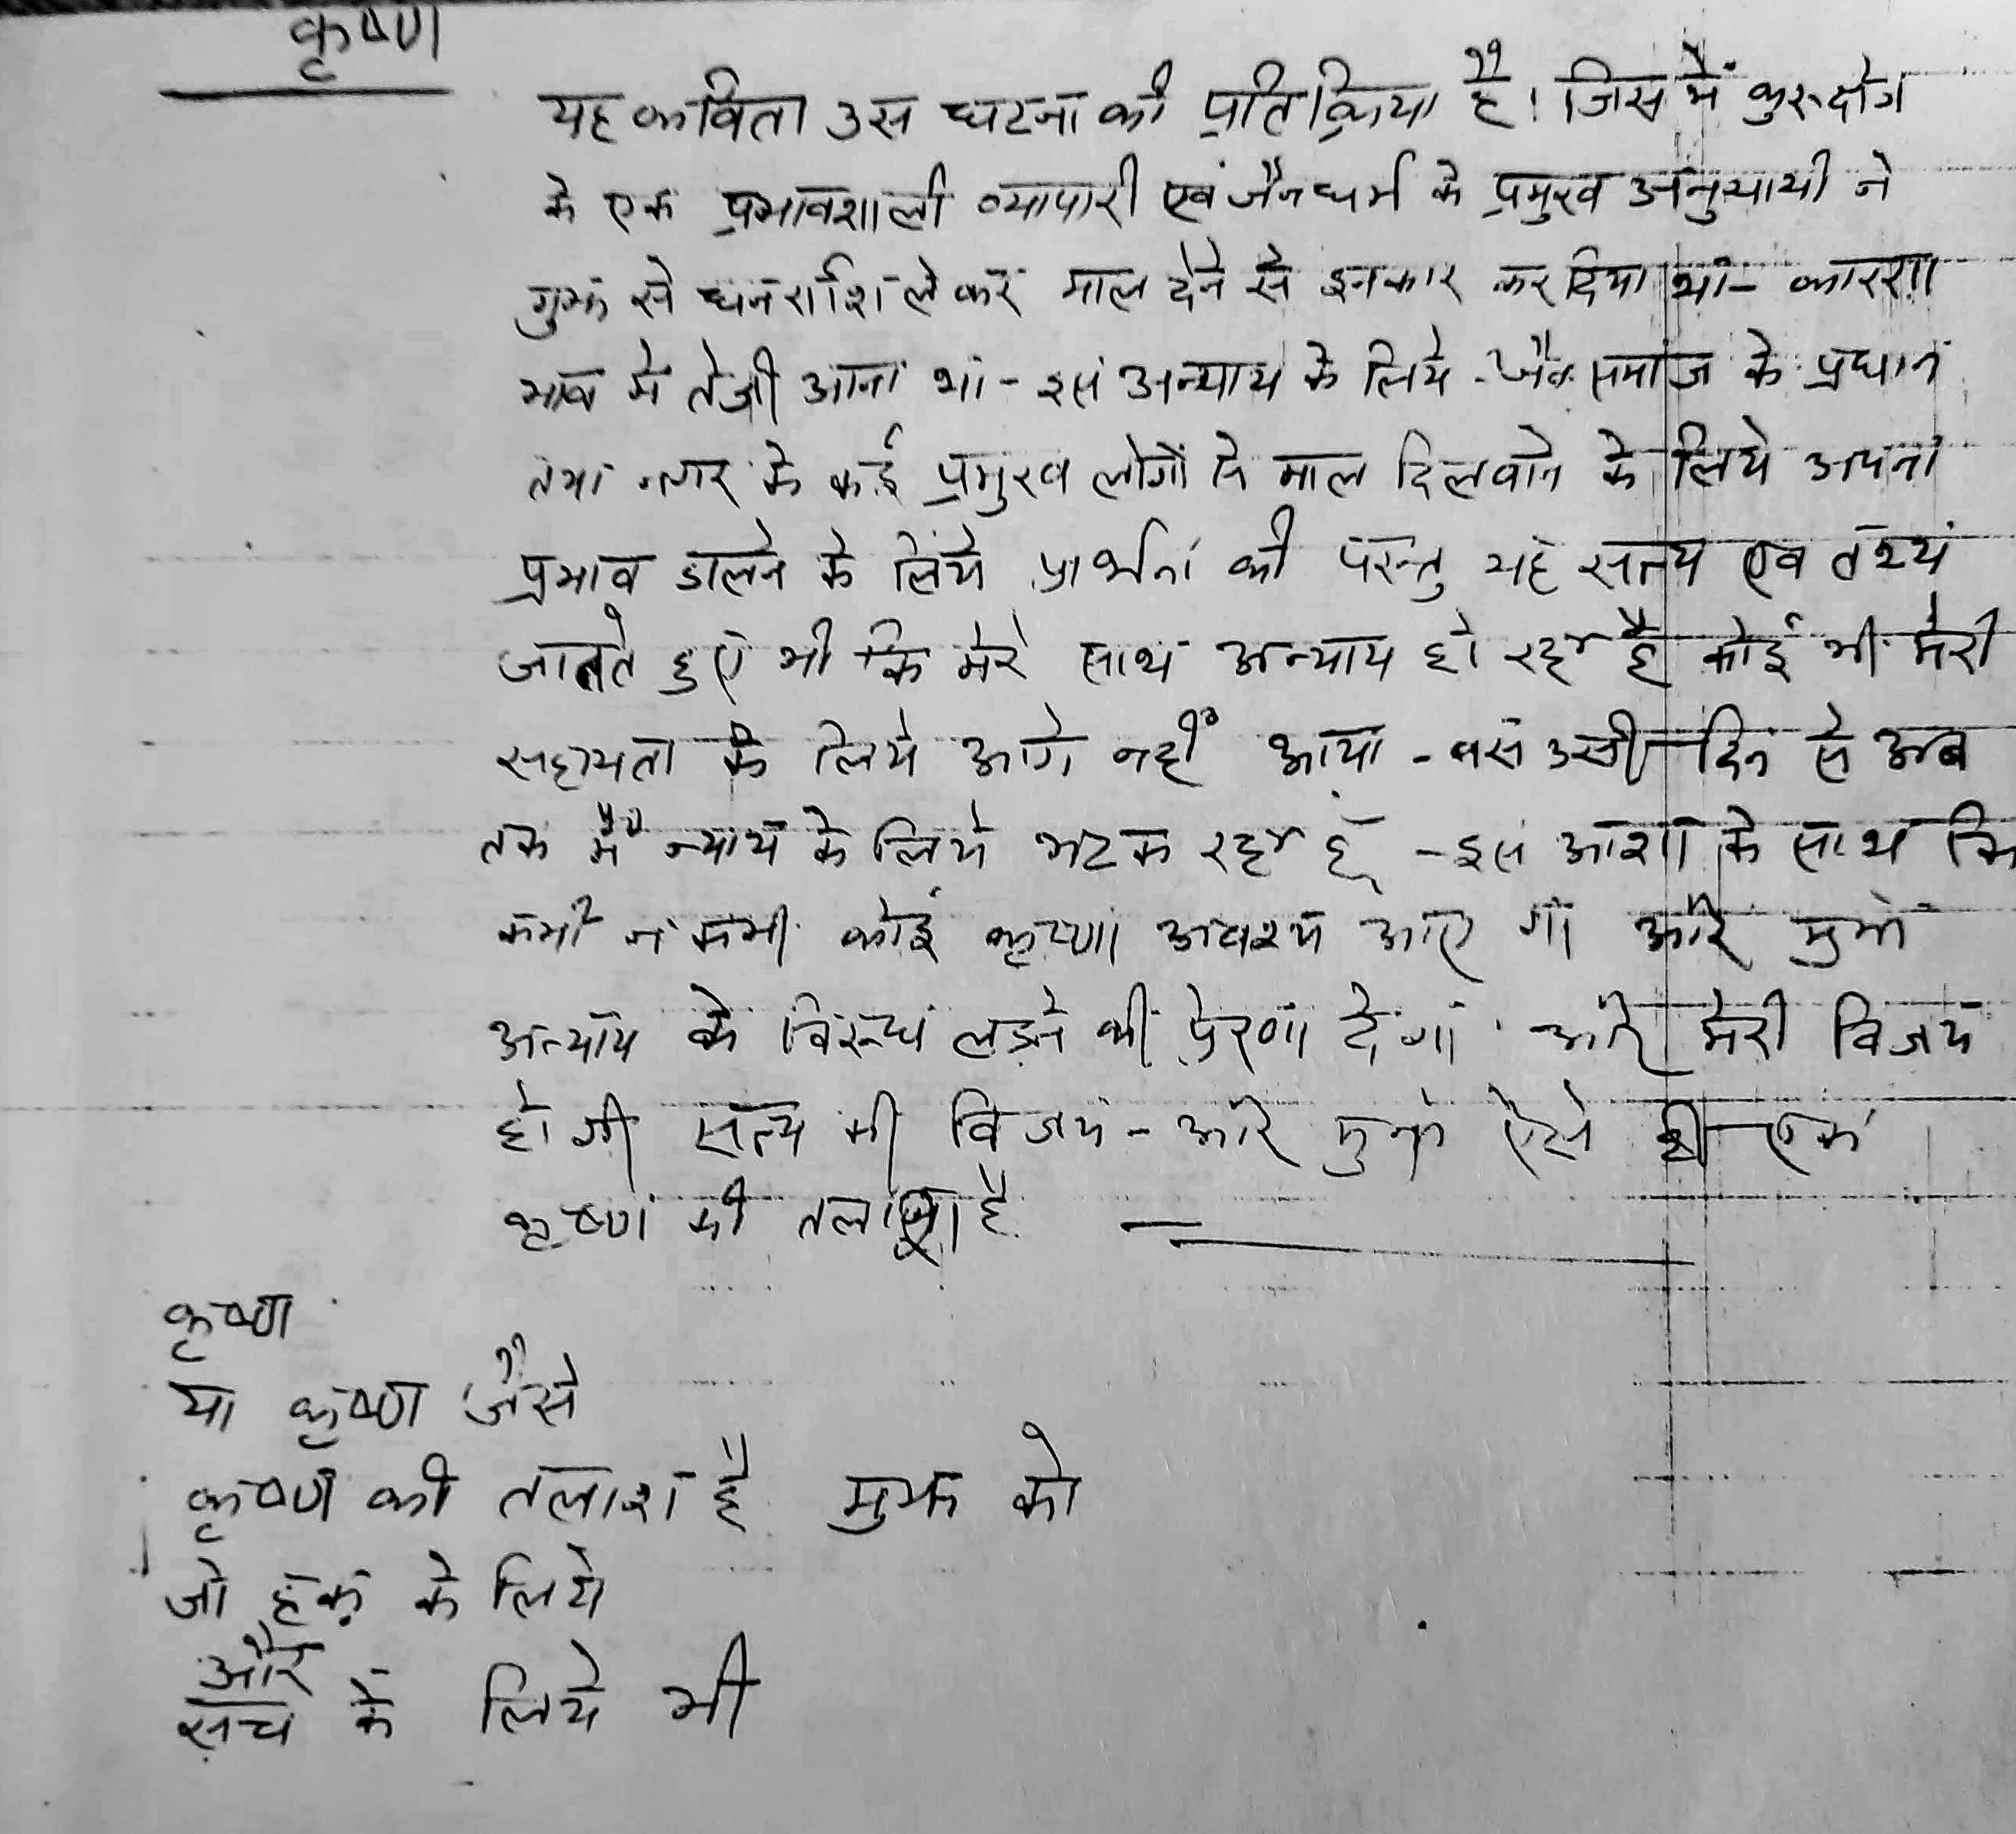 कृष्ण
यह कविता उस घटना की प्रतिक्रिया है। जिस में कुरुक्षेत्र
के एक प्रभावशाली व्यापारी एवं जैन धर्म के प्रमुख अनुयायी ने
मुझ से धनराशि लेकर माल देने से इनकार कर दिया था - कारण
भाव में तेजी आना था - इस अन्याय के लिये - जैन समाज के प्रधान
तथा नगर के कई प्रमुख लोगों से माल दिलवाने के लिये अपना
प्रभाव डालने के लिये प्रार्थना की परन्तु यह सत्य एवं तथ्य
जानते हुए भी कि मेरे साथ अन्याय हो रहा है कोई भी मेरी
सहायता के लिये आगे नहीं आया - बस उसी दिन से अब
तक मैं न्याय के लिये भटक रहा हूँ - इस आशा के साथ कि
कभी न कभी कोई कृष्ण अवश्य आए गा और मुझे
अन्याय के विरुध लड़ने की प्रेरणा देगा और मेरी विजय
हो गी सत्य की विजय - और मुझे ऐसे ही एक
कृष्ण की तलाश है
कृष्ण
या कृष्ण जैसे
कृष्ण की तलाश है मुझ को
जो हक़ के लिये
और
सच के लिये भी